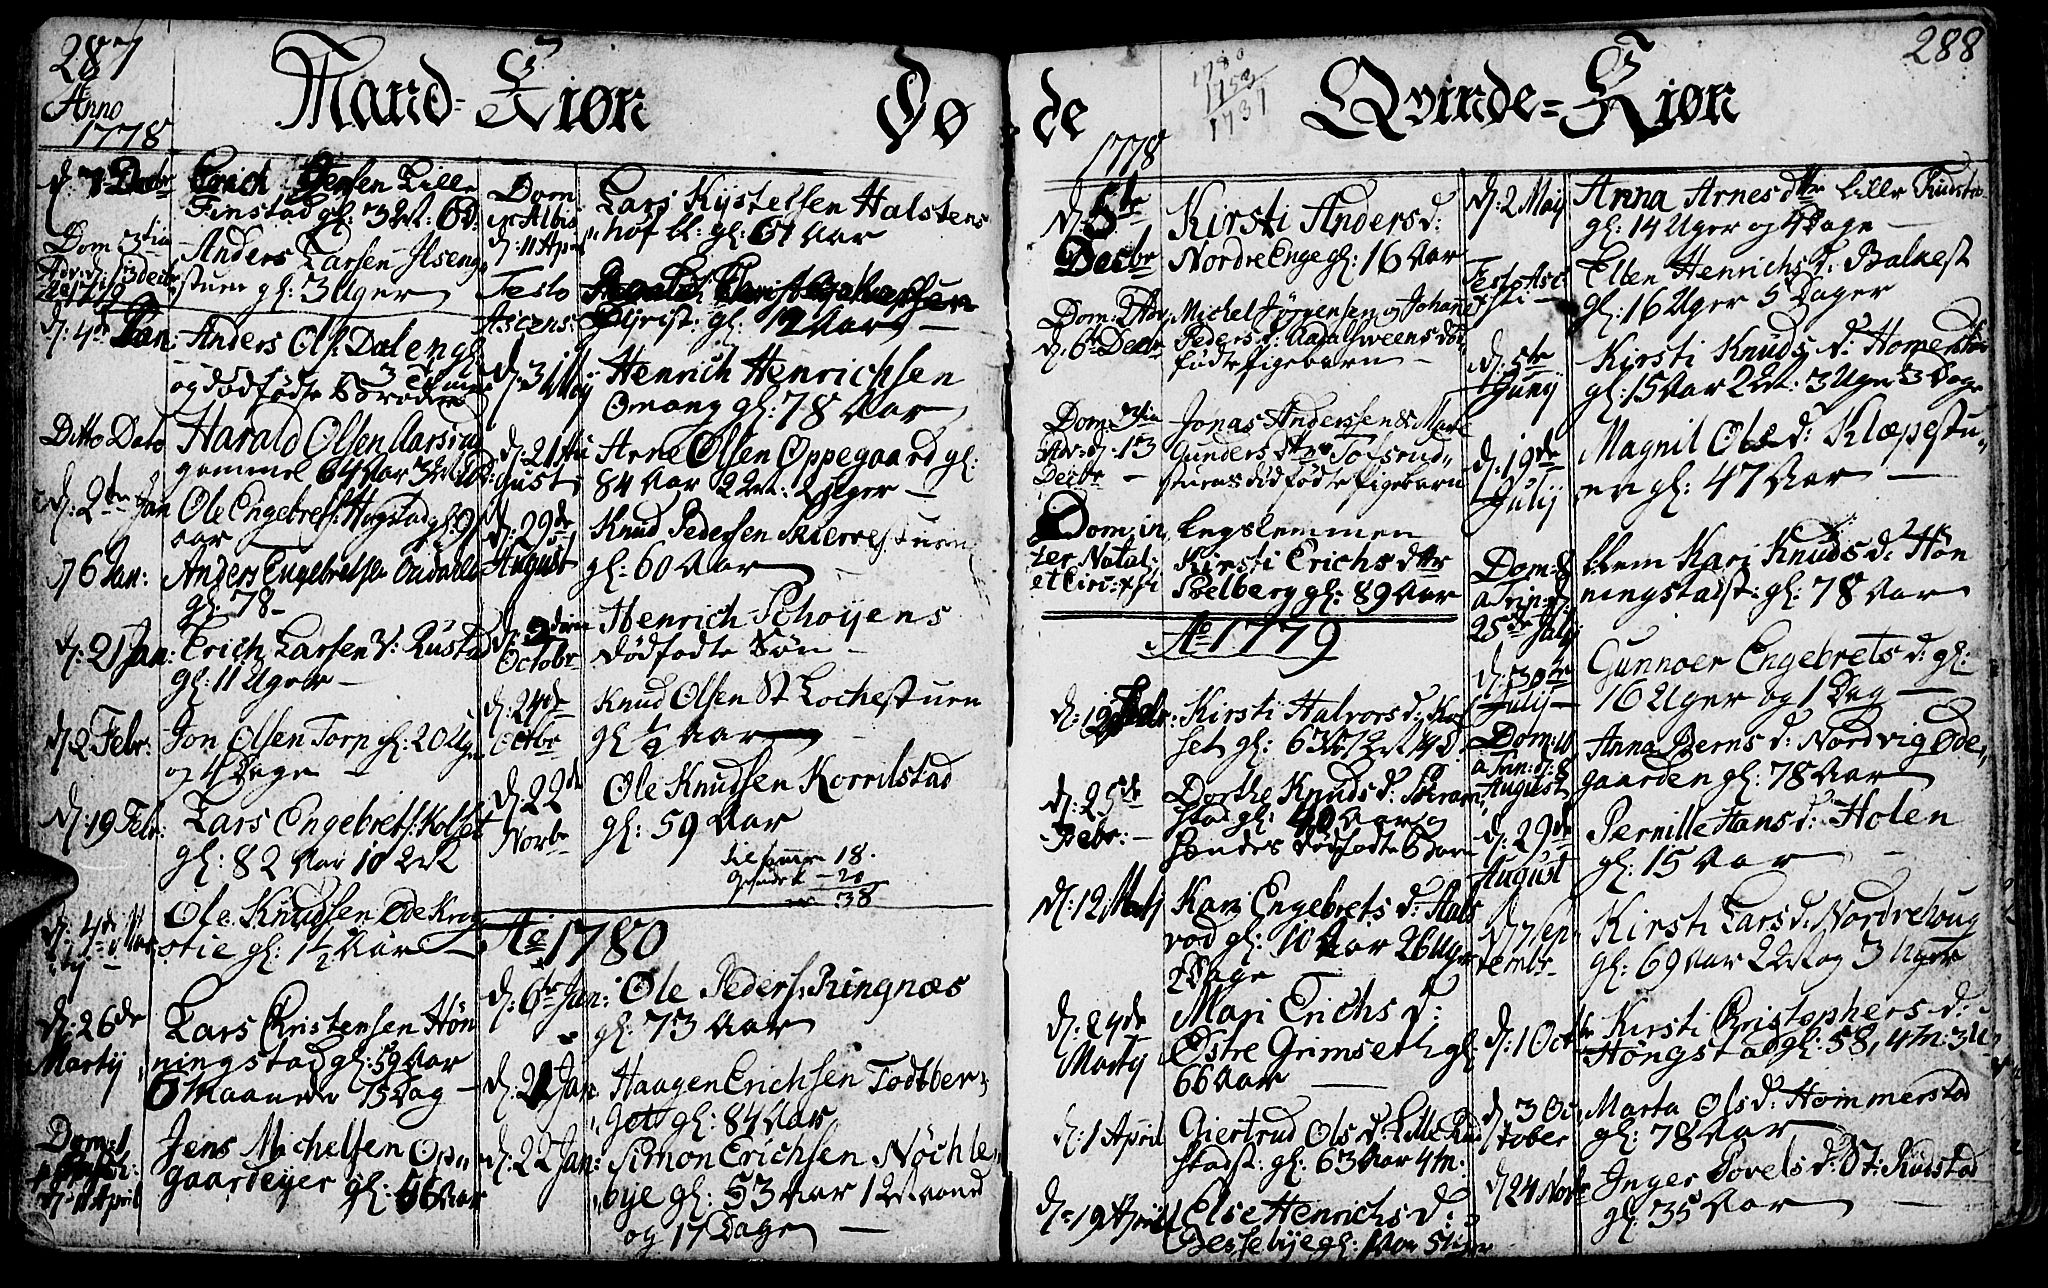 287
Anno
1778
Mand-Kiøn
Dø
d: 7 Decbr
Erich Jensen Lille
Finstad gl: 3 Ut: 6 D:
Dom 3tia
Adv: d: 13 Decbr
Anders Larsen Ilseng
stuen gl: 3 Uger
d: 4de Jan:
Anders Ols: Dalen gl:
og dødfødte Broder
Ditto Dato
Harald Olsen Aarsrud
gammel 64 Aar
d: 2den Jan
Ole Engebrets: Hogstad gl:
aar
d 6 Jan:
Anders Engebretsen
gl: 78-
d: 21 Jan:
Erich Larsen V: Rustad
gl: 11 Uger-
d 2 Febr:
Jon Olsen Torp gl: 20 Uger
og 4 Dage
d: 19 Febr:
Lars Engebrets: Kolset
gl: 82 Aar 10
d: 4de Martij
Ole Knudsen Ode Krog
stie gl: 1½ Aar
d: 26de
Martij
Lars Christensen Høn
ningstad gl: 59 Aar
6 Maaneder 15 Dag
Dom: 1
d: 11 April
Jens Michelsen Op
gaardeyer gl: 56 Aar
Dom
in Albis
d: 11 Apr
Lars Kystelsen Halstens
hof gl: 67 Aar
Festo
Ascens:
gl: 19 Aar
d: 31 Maj
Henrich Henrichsen
Omang gl: 78 Aar
d: 21 Au
gusti
Arne Olsen Oppegaard gl:
84 Aar 2 Ut: 2 Uger
d: 29de
August
Knud Pedersen Skierrestuen
gl: 60 Aar
d: 3die
Octobr
Henrich Schoyens
dødfødte Søn
d: 24de
Octbr
Knud Olsen St Lochestuen
gl ¼ Aar
d: 22de
Novbr
Ole Knudsen Korrilstad
gl: 59 Aar
Tilsammen 18.
20
38
Ao 1780
d: 6te Jan:
Ole Peders: Ringnæs
gl: 73 Aar
d: 21 Jan
Haagen Erichsen Todtber
get gl: 84 Aar
d: 22 Jan:
Simon Erichsen Nøchle
bye gl: 53 Aar 1
og 17 Dage
288
de
Qvinde-Kiøn
1780
1753
1731
1778
d: 5te
Decbr
Kirsti Anders d:
Nordre Enge gl: 16 Aar
Dom: 2 Adv
d: 6te Decbr
Michel Jørgensen og Johanne
Peders d: Aadalsweens død
fødte Pigebarn
Dom: 3tia
Adv: d: 13
Decbr
Jonas Andersen & Mari
Gunders dtrs Tofsrud
stuens dødfødte Pigebarn
Dom in
ter Natal:
et Circ: xsti
Legslemmen
Kirsti Erichs dttr
Selberg gl: 89 Aar
Ao 1779
d: 19 Febr:
Kirsti Halvors d: Kol
set gl: 63
d: 25de
Febr:
Dorthe Knuds d: Skram
stad gl: 40 Aar og
hendes dødfødte Barn
d: 12 Martij
Kari Engebrets d: Aals
rod gl: 10 Aar 26 Uger
2 Dage
d: 24de
Martij
Mari Erichs d:
Østre Grimseth gl:
66 Aar
d: 1 April
Giertrud Ols d: Lille Rud
stads: gl: 63 Aar 4 m:
d: 19 April
Else Henrichs d:
Dessebye gl: 1 Aar 5 Uger
d: 2 Maij
Anna Arnes dttr Lille Findsta
gl: 14 Uger og 4 Dage
Festo Asc
xsti
Ellen Henrichs d: Balkest
gl: 16 Uger 5 Dager
d: 5te
Junij
Kirsti Knuds d: Homerstad
gl: 15 Aar 2 Ut: 3 Uger 3 Dage
d: 19de
Julij
Magnil Ole d: Klæpestu
en gl: 47 Aar
Dom: 8
a Trin: d:
25de Julij
lem Kari Knuds d: Høn
ningstads: gl: 78 Aar
d: 30te
Julij
Gunnoer Engebrets d: gl:
16 Uger og 1 Dag
Dom: 10
a Trin: d: 8
August
Anna Berns d: Nordvig Øde
gaarden gl: 78 Aar
d: 29de
August
Pernille Hans d: Holen
gl: 15 Aar
d 7 Sep
tembr
Kirsti Lars d: Nordrehoug
gl: 69 Aar 2 Ut og 3 Uger
d: 1 Octbr
Kirsti Christophers d:
Høngstad gl: 58, 4 m: 3 U
d 3 Oc
tober
Marta Ols d: Hommerstad
gl: 78 Aar
d 24 Novbr
Inger Povels d: St: Rudstad
gl: 35 Aar